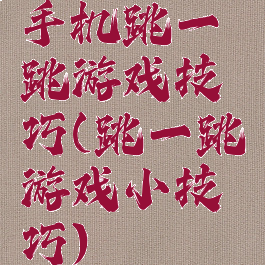 手机跳一
跳游戏技
巧(跳一跳
游戏小技
巧)